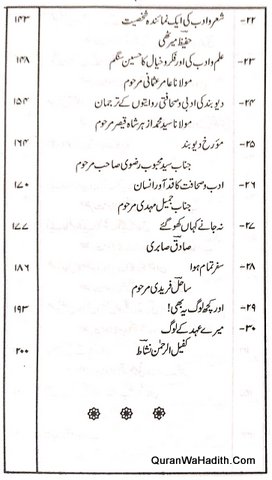 ۲۲- شعر و ادب کی ایک نمائندہ شخصیت ۱۴۳
حفیظ میرٹھی
۲۳- علم و ادب کی اور فکر و خیال کا حسین سنگم ۱۴۸
مولانا عامر عثمانی مرحوم
۲۴- دیوبند کی ادبی و صحافتی روایتوں کے ترجمان ۱۵۴
مولانا سید محمد ازہر شاہ قیصر مرحوم
۲۵- مؤرخ دیوبند ۱۶۴
جناب سید محبوب رضوی صاحب مرحوم
۲۶- ادب و صحافت کا قد آور انسان ۱۷۰
جناب جمیل مہدی مرحوم
۲۷- نہ جانے کہاں کھو گئے ۱۷۷
صادق صابری
۲۸- سفر تمام ہوا ۱۸۶
ساحل فریدی مرحوم
۲۹- اور کچھ لوگ یہ بھی! ۱۹۳
۳۰- میرے عہد کے لوگ
کفیل الرحمٰن نشاط ۲۰۰
QuranWaHadith.Com